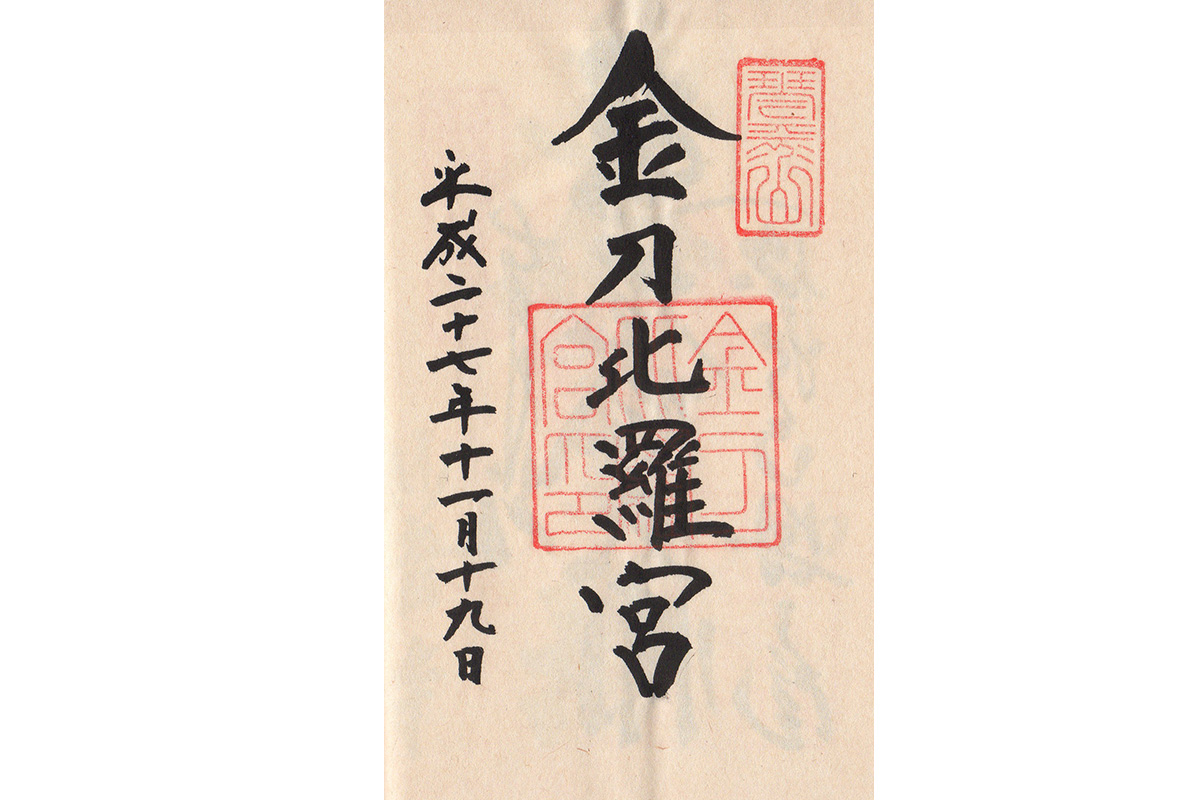 琴平山
金刀比羅宮
金刀比羅宮之印
平成二十七年十一月十九日